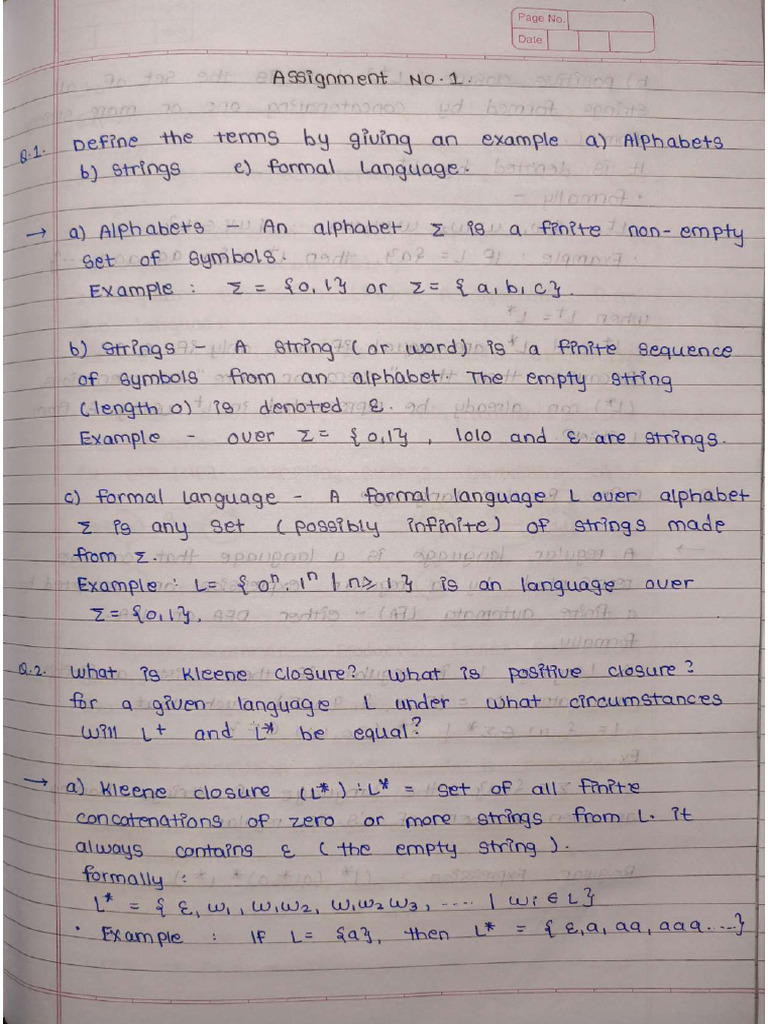 Page No.
Date
Assignment No. 1.
Q.1. Define the terms by giving an example a) Alphabets
b) Strings c) formal Language.
→ a) Alphabets - An alphabet Σ is a finite non-empty
set of symbols.
Example : Σ = {0,1} or Σ = {a,b,c}.
b) Strings - A string (or word) is a finite sequence
of symbols from an alphabet. The empty string
(length 0) is denoted ε.
Example - over Σ = {0,1} , 1010 and ε are strings.
c) formal language - A formal language L over alphabet
Σ is any set (possibly infinite) of strings made
from Σ.
Example : L = {0ⁿ. 1ⁿ | n ≥ 1} is an language over
Σ = {0,1}.
Q.2. What is Kleene closure? What is positive closure?
for a given language L under what circumstances
will L⁺ and L* be equal?
→ a) Kleene closure (L*) : L* = set of all finite
concatenations of zero or more strings from L. it
always contains ε (the empty string).
formally :
L* = {ε, w₁, w₁w₂, w₁w₂w₃, .... | wi ∈ L}
• Example : If L = {a}, then L* = {ε,a, aa, aaa....}